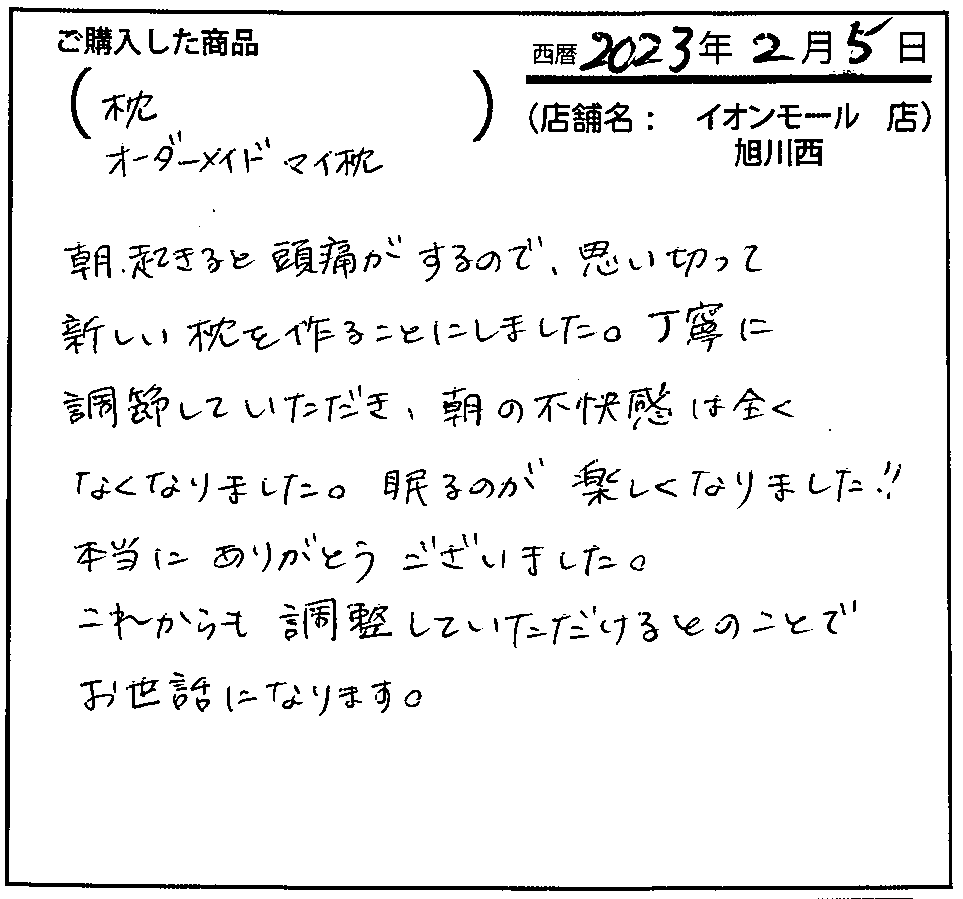 ご購入した商品
西暦 2023年 2月 5日
(枕)
オーダーメイド マイ枕
(店舗名： イオンモール 店)
旭川西
朝、起きると頭痛がするので、思い切って
新しい枕を作ることにしました。丁寧に
調節していただき、朝の不快感は全く
なくなりました。眠るのが楽しくなりました!!
本当に ありがとう ございました。
これからも 調整していただけるとのことで
お世話になります。